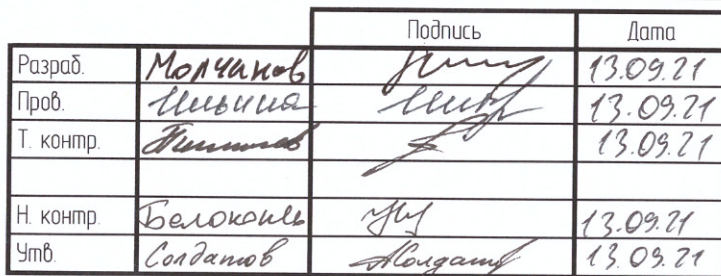 Подпись Дата
Разраб. Молчанов 13.09.21
Пров. Ильина 13.09.21
Т. контр. 13.09.21
Н. контр. Белоконь 13.09.21
Утв. Солдатов 13.09.21